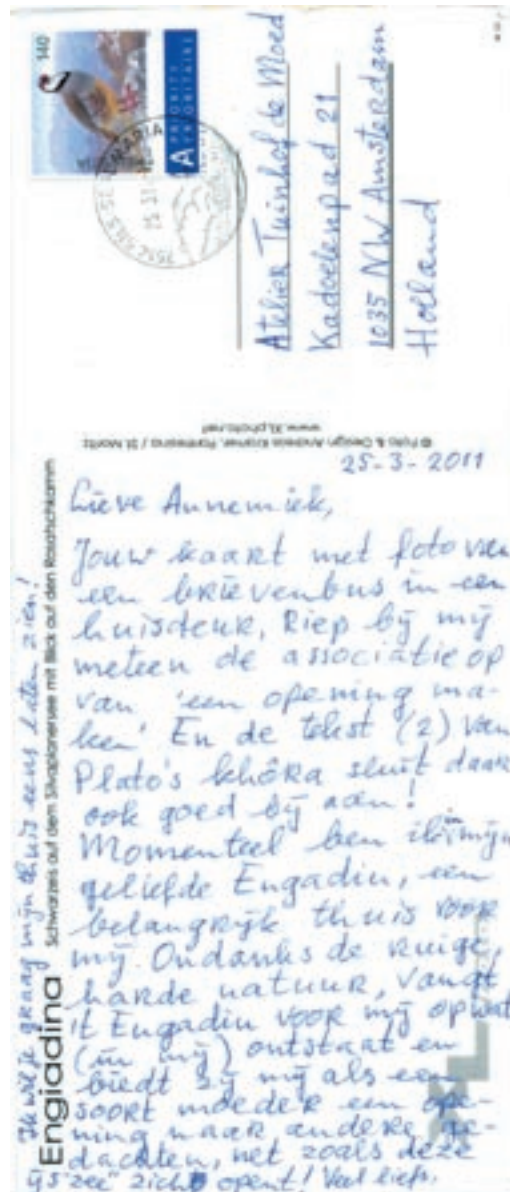 140
A PRIORITY
PRIORITAIRE
Atelier Tuinhof de Moed
Kadoelenpad 21
1035 NW Amsterdam
Holland
© Foto & Design Andrea Kramer, Pontresina / St. Moritz
www.XLphoto.net
25-3-2011
Lieve Annemiek,
Jouw kaart met foto van
een brievenbus in een
huisdeur, riep bij mij
meteen de associatie op
van 'een opening ma-
ken' En de tekst (2) van
Plato's khôra sluit daar
ook goed bij aan!
Momenteel ben ik in mijn
geliefde Engadin, een
belangrijk thuis voor
mij. Ondanks de ruige,
harde natuur, vangt
't Engadin voor mij op wat
(in mij) ontstaat en
biedt zij mij als een
soort moeder een ope-
ning naar andere ge-
dachten, net zoals deze
ijs"zee" zich opent! Veel liefs,
Ik wil je graag mijn thuis eens laten zien!
Engiadina
Schwarzeis auf dem Silvaplanersee mit Blick auf den Rosatschkamm
XL